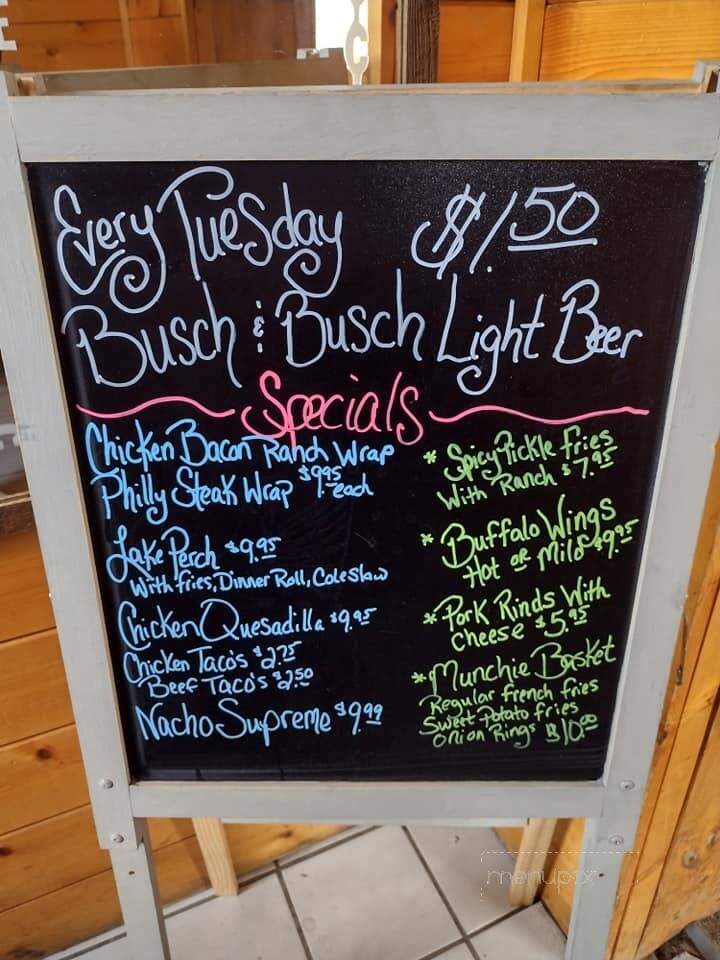 Every Tuesday $1.50
Busch & Busch Light Beer
Specials
Chicken Bacon Ranch Wrap
Philly Steak Wrap $9.95 each
Lake Perch $9.95
With fries, Dinner Roll, Coleslaw
Chicken Quesadilla $9.95
Chicken Taco's $2.75
Beef Taco's $2.50
Nacho Supreme $9.99
* Spicy Pickle fries
With Ranch $7.95
* Buffalo Wings
Hot or Mild $9.95
* Pork Rinds With
Cheese $5.95
* Munchie Basket
Regular french fries
Sweet Potato fries
Onion Rings $10.00
menupix